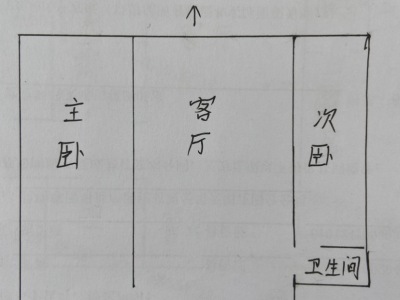 主卧
客厅
次卧
卫生间